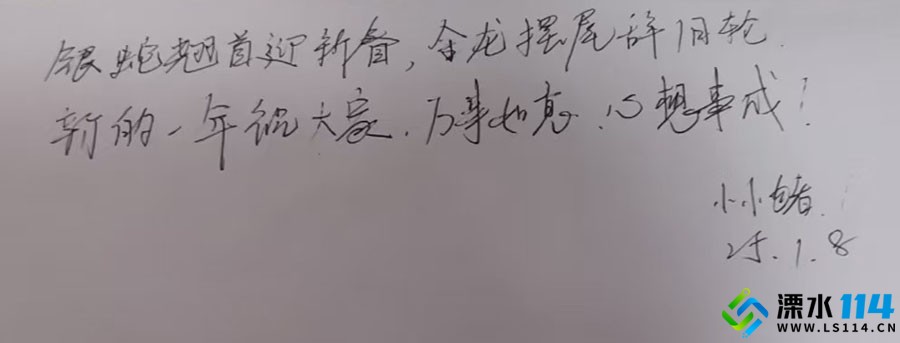 银蛇翘首迎新春，金龙摆尾辞旧轮.
新的一年祝大家.万事如意.心想事成！
小小猪.
25.1.8
溧水114
WWW.LS114.CN